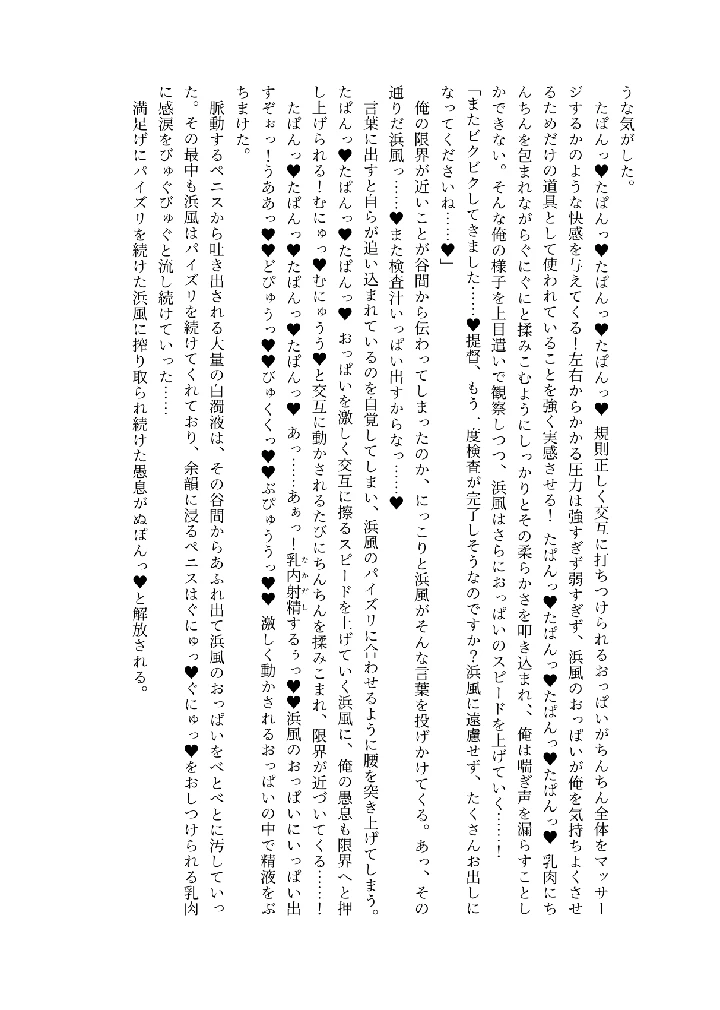 うな気がした。
たぱんっ♥たぱんっ♥たぱんっ♥たぱんっ♥ 規則正しく交互に打ちつけられるおっぱいがちんちん全体をマッサー
ジするかのような快感を与えてくる！左右からかかる圧力は強すぎず弱すぎず、浜風のおっぱいが俺を気持ちよくさせ
るためだけの道具として使われていることを強く実感させる！ たぱんっ♥たぱんっ♥たぱんっ♥たぱんっ♥ 乳肉にち
んちんを包まれながらぐにぐにと揉みこむようにしっかりとその柔らかさを叩き込まれ、俺は喘ぎ声を漏らすことし
かできない。そんな俺の様子を上目遣いで観察しつつ、浜風はさらにおっぱいのスピードを上げていく……！
「またビクビクしてきました……♥提督、もう一度検査が完了しそうなのですか？浜風に遠慮せず、たくさんお出しに
なってくださいね……♥」
俺の限界が近いことが谷間から伝わってしまったのか、にっこりと浜風がそんな言葉を投げかけてくる。あっ、その
通りだ浜風っ……♥また検査汁いっぱい出すからなっ……♥
言葉に出すと自らが追い込まれているのを自覚してしまい、浜風のパイズリに合わせるように腰を突き上げてしまう。
たぱんっ♥たぱんっ♥たぱんっ♥ おっぱいを激しく交互に擦るスピードを上げていく浜風に、俺の愚息も限界へと押
し上げられる！むにゅっ♥むにゅうう♥と交互に動かされるたびにちんちんを揉みこまれ、限界が近づいてくる……！
たぱんっ♥たぱんっ♥たぱんっ♥たぱんっ♥ あっ……あぁっー乳内射精するぅっ♥♥浜風のおっぱいにいっぱい出
すぞぉっ！うああっ♥♥どぴゅうっ♥♥びゅくくっ♥♥ぶぴゅううっ♥♥ 激しく動かされるおっぱいの中で精液をぶ
ちまけた。
脈動するペニスから吐き出される大量の白濁液は、その谷間からあふれ出て浜風のおっぱいをべとべとに汚していっ
た。その最中も浜風はパイズリを続けてくれており、余韻に浸るペニスはぐにゅっ♥ぐにゅっ♥をおしつけられる乳肉
に感涙をびゅぐびゅぐと流し続けていった……
満足げにパイズリを続けた浜風に搾り取られ続けた愚息がぬぽんっ♥と解放される。